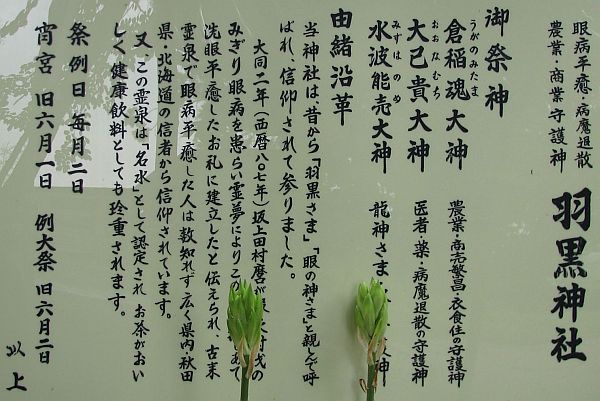 眼病平癒・病魔退散
農業・商業守護神
羽黒神社
御祭神
倉稲魂大神
うがのみたま
農業・商売繁昌・衣食住の守護神
大已貴大神
おおなむち
医者・薬・病魔退散の守護神
水波能売大神
みずはのめ
龍神さま
大神
由緒沿革
当神社は、昔から「羽黒さま」「眼の神さま」と親しんで呼
ばれ、信仰されて参りました。
大同二年(西暦八〇七年)坂上田村麿が
の
みぎり眼病を患らい霊夢によりこの
あて
洗眼平癒したお礼に建立したと伝えられ、古来
霊泉で眼病平癒した人は数知れず広く県内、秋田
県・北海道の信者から信仰されています。
又、この霊泉は「名水」として認定され、お茶がおい
しく健康飲料としても珍重されます。
祭例日 毎月二日
宵宮 旧六月一日 例大祭 旧六月二日
以上